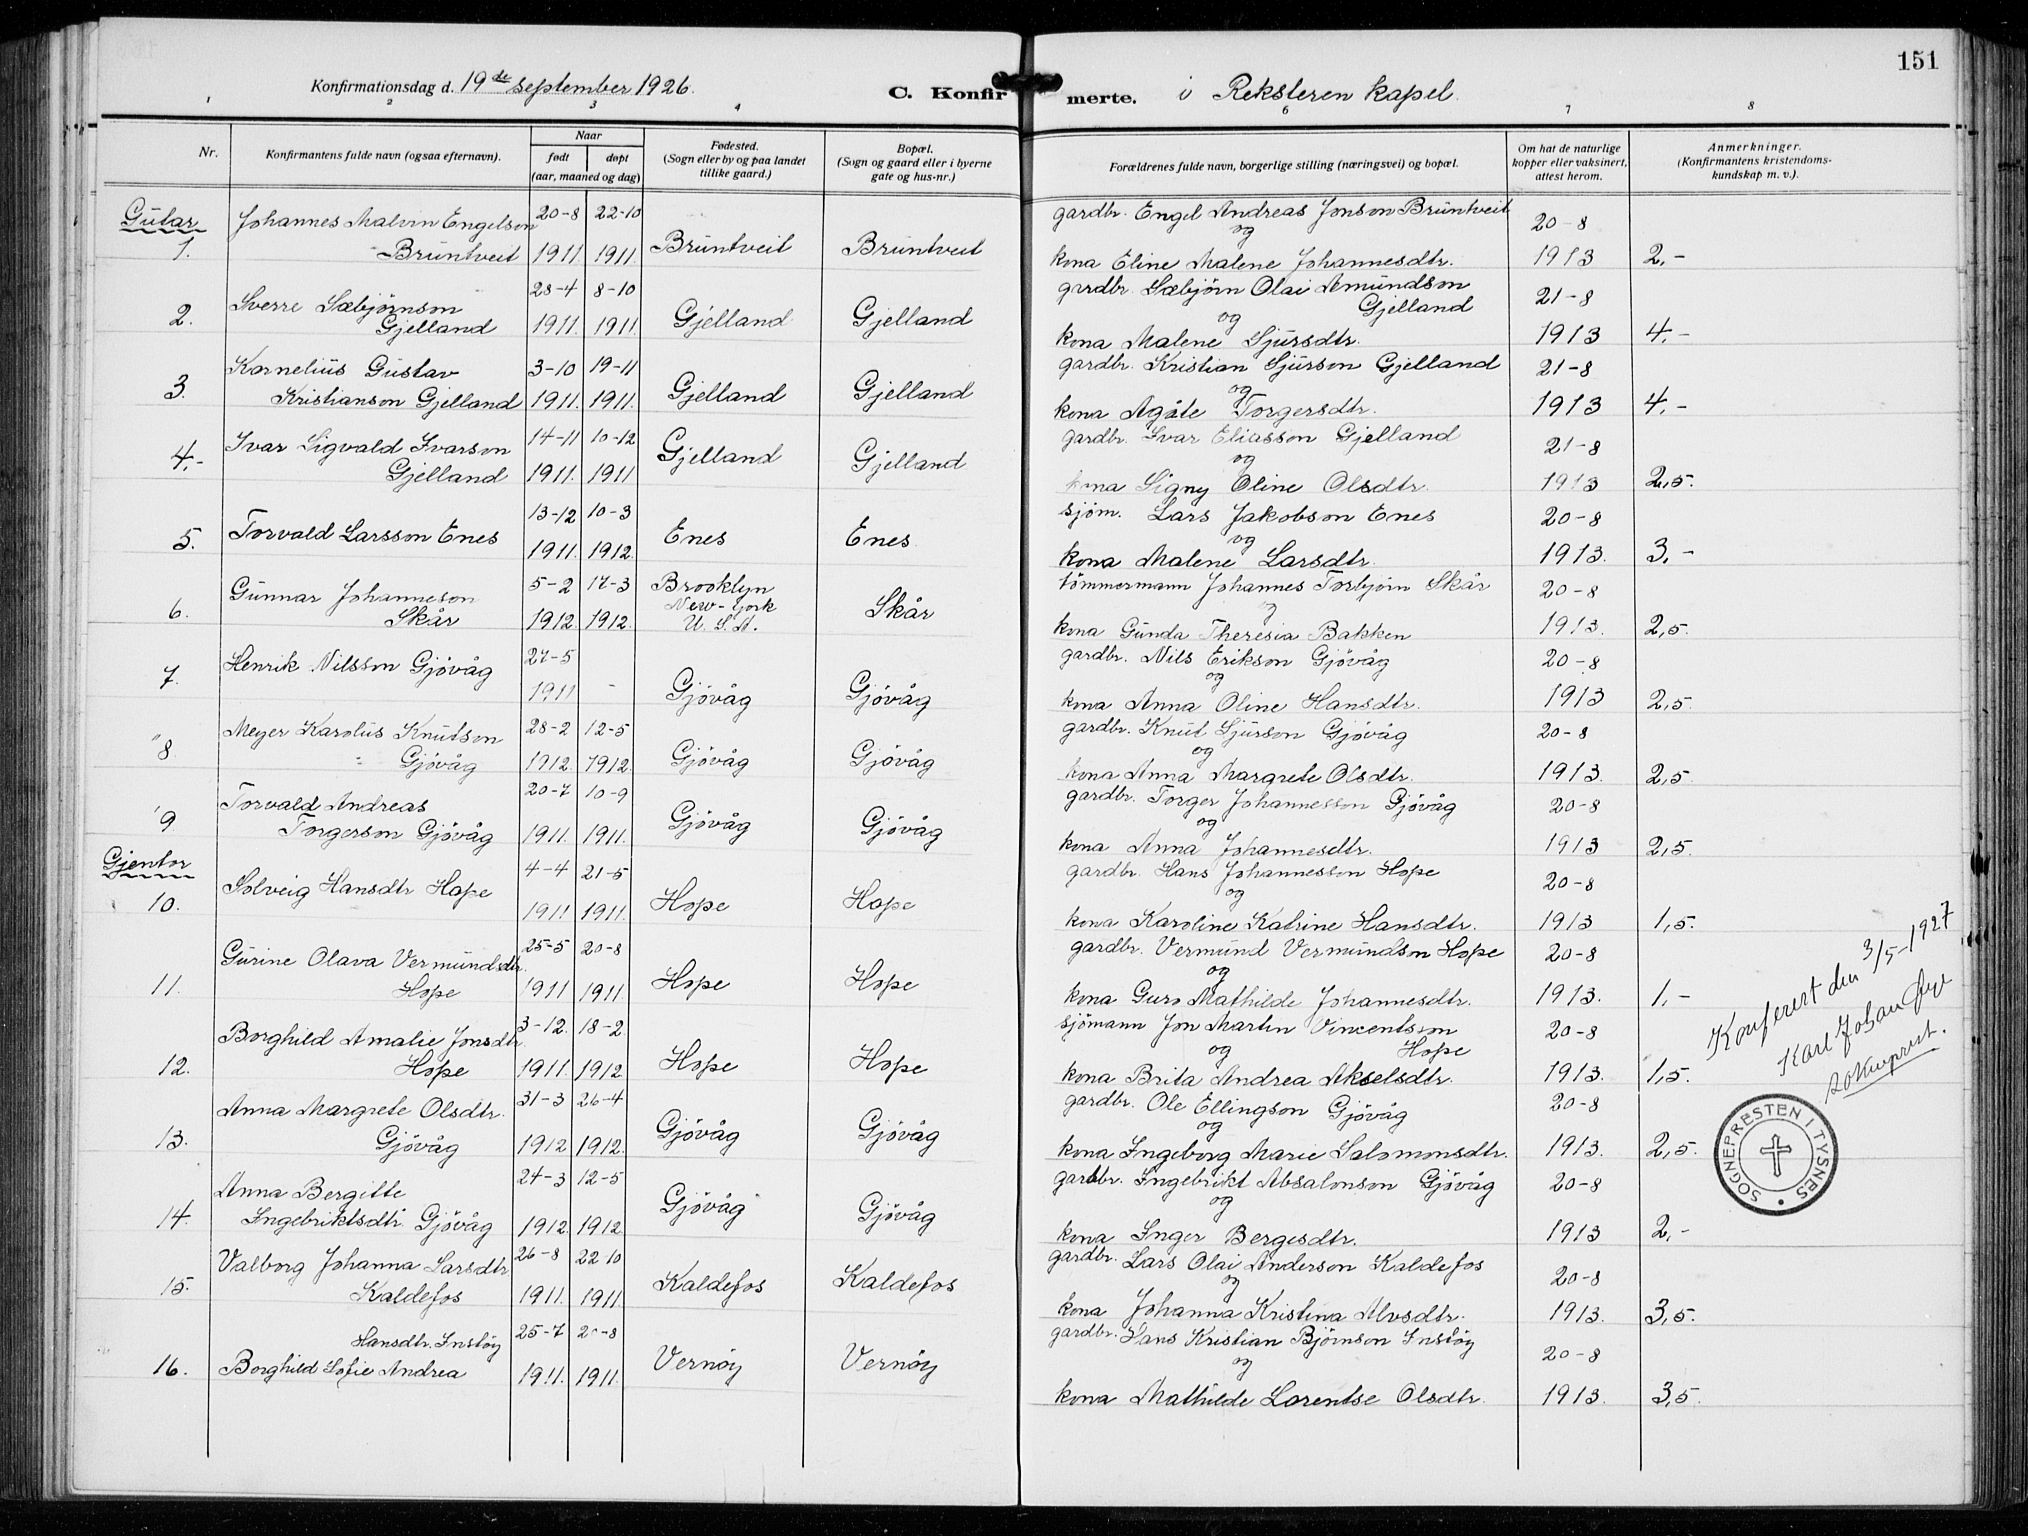 151
Konfirmationsdag d. 19de september 1926.
C. Konfirmerte. i Reksteren kapel.
1 2 3 4 6 7 8
Nr. Konfirmantens fulde navn (ogsaa efternavn). Naar født døpt (aar, maaned og dag) Fødested. (Sogn eller by og paa landet tillike gaard.) Bopæl. (Sogn og gaard eller i byerne gate og hus-nr.) Forældrenes fulde navn, borgerlige stilling (næringsvei) og bopæl. Om hat de naturlige kopper eller vaksinert, attest herom. Anmerkninger. (Konfirmantens kristendomskundskap m. v.).
Gutar
Johannes Malvin Engelson 20-8 22-10 gardbr. Engel Andreas Jonson Bruntveit 20-8
og
1. Bruntveit 1911. 1911. Bruntveit Bruntveit kona Eline Malene Johannesdtr. 1913 2,-
Sverre Sæbjørnson 28-4 8-10 gardbr. Sæbjörn Olai Amundson 21-8
Gjelland
og
2. Gjelland 1911. 1911. Gjelland Gjelland kona Malene Sjursdtr. 1913 4,-
Kornelius Gustav 3-10 19-11 gardbr. Kristian Sjurson Gjelland 21-8
og
3. Kristianson Gjelland 1911. 1911. Gjelland Gjelland kona Agåte Torgersdtr. 1913 4,-
Ivar Sigvald Ivarson 14-11 10-12 gardbr. Ivar Eliasson Gjelland 21-8
og
4,- Gjelland 1911. 1911 Gjelland Gjelland kona Signy Eline Olsdtr. 1913 2,5.
13-12 10-3 sjöm. Lars Jakobson Enes 20-8
og
5. Torvald Larsson Enes 1911. 1912. Enes Enes. kona Malene Larsdtr. 1913. 3,-
Gunnar Johanneson 5-2 17-3 Brooklyn tömmermann Johannes Torbjörn Skår 20-8
New-York
og
6. Skår 1912. 1912. U. S. A. Skår kona Gunda Theresia Bakken 1913. 2,5.
Henrik Nilsson Gjövåg 27-5 gardbr. Nils Erikson Gjövåg 20-8
og
7. 1911 - Gjövåg Gjövåg kona Anna Oline Hansdtr. 1913 2,5.
Meyer Karolus Knutson 28-2 12-5 gardbr. Knut Sjurson Gjövåg 20-8
og
8 Gjövåg 1912. 1912. Gjövåg Gjövåg kona Anna Margrete Olsdtr. 1913. 2,5.
Torvald Andreas 20-7 10-9 gardbr. Torger Johannesson Gjövåg 20-8
og
9 Torgerson Gjövåg 1911. 1911. Gjövåg Gjövåg kona Anna Johannesdtr. 1913 2,5.
Gjentor
Solveig Hansdtr Hope 4-4 21-5 gardbr. Hans Johannesson Hope 20-8
og
10. 1911 1911. Hope Hope kona Karoline Katrine Hansdtr. 1913 1,5.
Gurine Olava Vermundsdtr. 25-5 20-8 gardbr. Vermund Vermundson Hope 20-8
og
11. Hope 1911 1911 Hope Hope kona Guro Mathilde Johannesdtr. 1913. 1,-
Borghild Amalie Jonsdtr. 3-12. 18-2 sjömann Jon Martin Vincentsson 20-8
og Hope
12. Hope 1911. 1912 Hope Hope kona Brita Andrea Akselsdtr. 1913. 1,5.
Anna Margrete Olsdtr. 31-3 26-4 gardbr. Ole Ellingson Gjövåg 20-8
og
13. Gjövåg 1912 1912. Gjövåg Gjövåg kona Ingeborg Marie Salomonsdtr. 1913. 2,5.
Anna Bergitte 24-3 12-5 gardbr. Ingebrikt Absalonson Gjövåg 20-8
og
14. Ingebriktsdtr. Gjövåg 1912. 1912. Gjövåg Gjövåg kona Inger Bergesdtr. 1913 2,-
Valborg Johanna Larsdtr 26-8 22 10 gardbr. Lars Olai Anderson Kaldefos 20-8
og
15. Kaldefos 1911. 1911. Kaldefos Kaldefos kona Johanna Kristina Alvsdtr. 1913. 3,5.
Hansdtr. Instöy 25-7 gardbr. Hans Kristian Björnson Instöy 20-8
og
16. Borghild Sofie Andrea 1911. 1911. Vernöy Vernöy kona Mathilde Lorentse Olsdtr. 1913. 3,5.
Konferert den 3/5-1927
Karl Johan
Sokneprest.
SOGNEPRESTEN I TYSNES